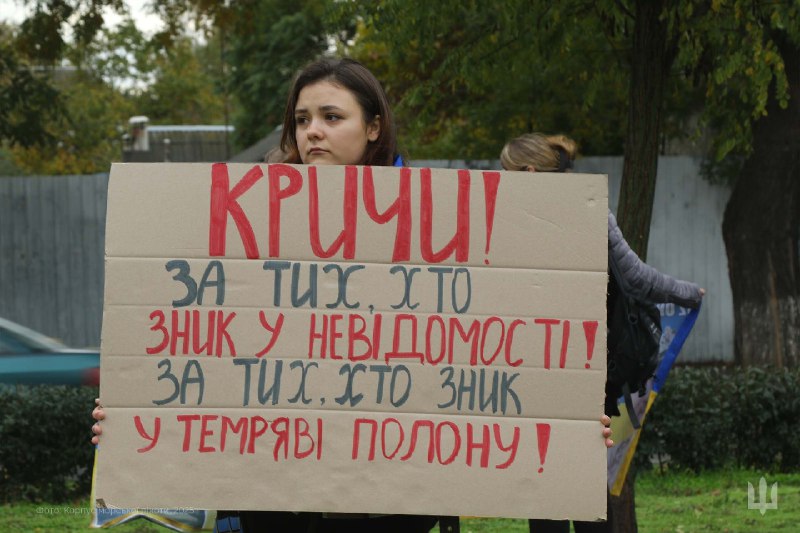 КРИЧИ!
ЗА ТИХ, ХТО
ЗНИК У НЕВІДОМОСТІ!
ЗА ТИХ, ХТО ЗНИК
У ТЕМРЯВІ ПОЛОНУ!
Фото: Корпус морської піхоти, 2025